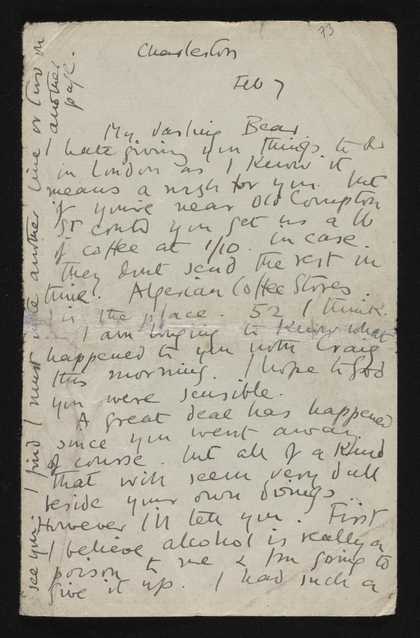 23
Charleston
Feb 7
My darling Bear
I hate giving you things to do
in London as I know it
means a rush for you. but
if you're near Old Compton
St could you get us a lb
of coffee at 1/10. in case
they dont send the rest in
time. Algerian Coffee Stores
is the place. 52 I think.
I am longing to know what
happened to you with Craig
this morning. I hope to God
you were sensible.
A great deal has happened
since you went away.
of course. but all of a kind
that will seem very dull
beside your own doings..
However I'll tell you. First
I believe alcohol is really a
poison to me & I'm going to
give it up. I had such a
see you. I find I must write another line or two in
another
page.